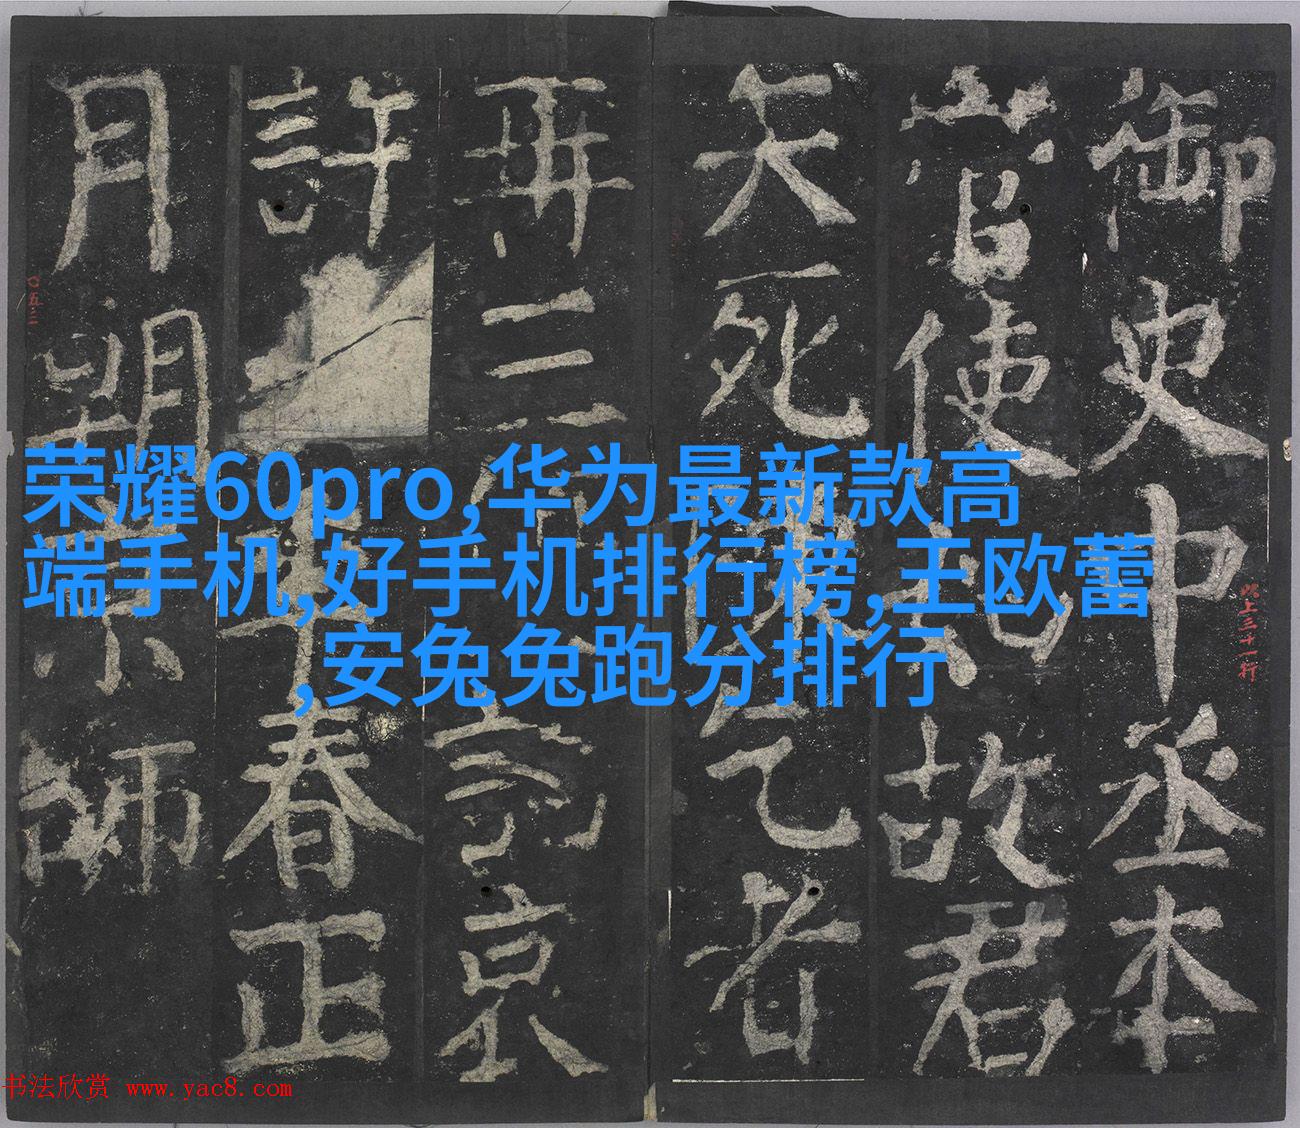 荣耀60pro,华为最新款高
端手机,好手机排行榜,王欧蕾
,安兔兔跑分排行
御史中丞本
當使故君
矢死乞者
再三京
許年春正
月朔京師
以上三十一行
〇五三
书法欣赏 www.yac8.com